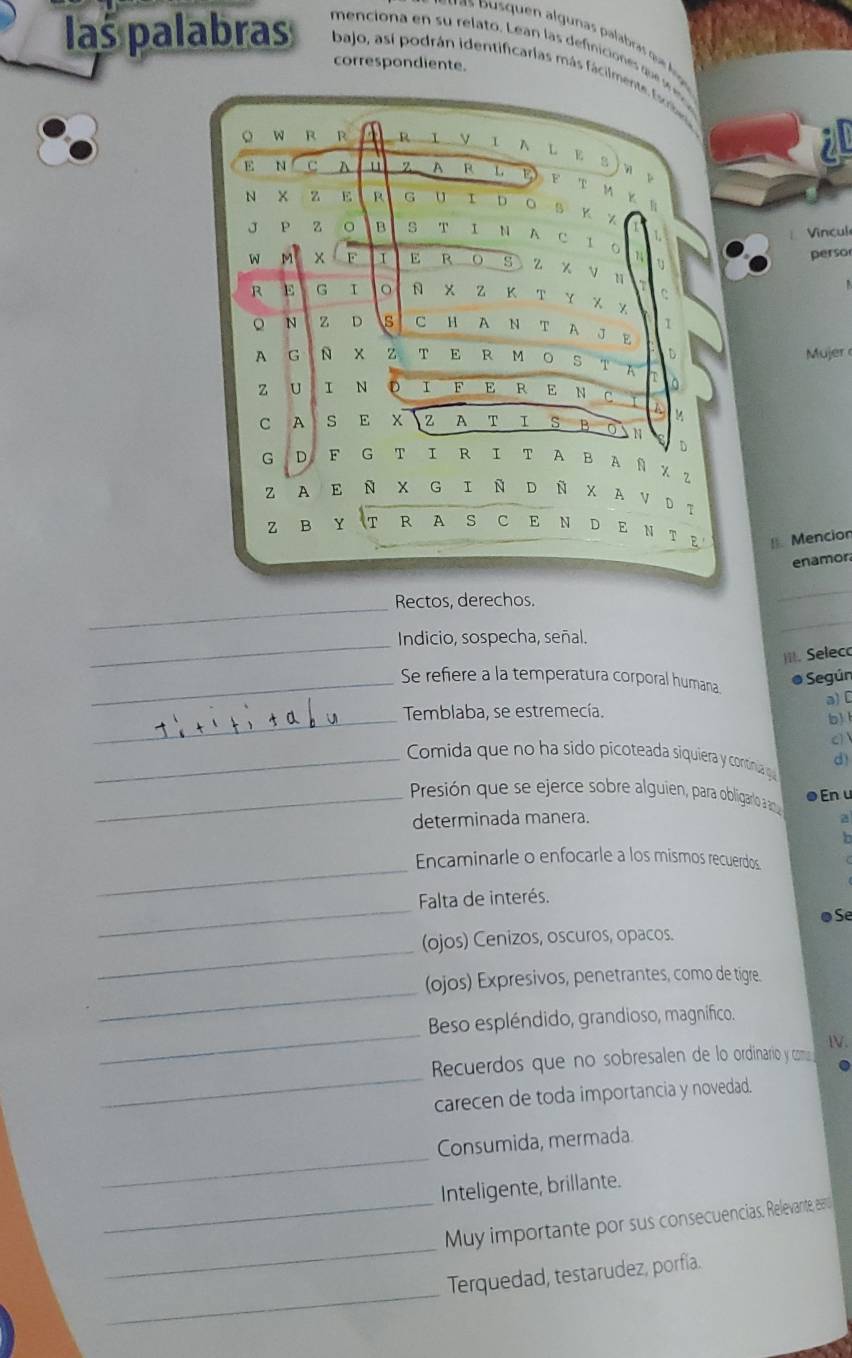 las palabras
busquen algunas palabras que
menciona en su relato. Lean las definiciones que se
bajo, así podrán identificarlas más fácilmente. Escriban
correspondiente.
Q W R R T R I V I A L E S W P
E N C A U Z A R L E F T M K N
N X Z E R G U I D O S K X I L
J P Z O B S T I N A C I O N U
W M X F I E R O S Z X V N T C
R E G I O Ñ X Z K T Y X X I
Q N Z D S C H A N T A J E D
A G Ñ X Z T E R M O S T A T O
Z U I N D I F E R E N C I A M
C A S E X Z A T I S B O N S D
G D F G T I R I T A B A Ñ X Z
Z A E Ñ X G I Ñ D Ñ X A V D T
Z B Y T R A S C E N D E N T E
Rectos, derechos.
Indicio, sospecha, señal.
Se refiere a la temperatura corporal humana.
tiritabu Temblaba, se estremecía.
Comida que no ha sido picoteada siquiera y continua
Presión que se ejerce sobre alguien, para obligarlo a
determinada manera.
Encaminarle o enfocarle a los mismos recuerdos.
Falta de interés.
(ojos) Cenizos, oscuros, opacos.
(ojos) Expresivos, penetrantes, como de tigre.
Beso espléndido, grandioso, magnífico.
Recuerdos que no sobresalen de lo ordinario y
carecen de toda importancia y novedad.
Consumida, mermada.
Inteligente, brillante.
Muy importante por sus consecuencias. Relevante,
Terquedad, testarudez, porfía.
¿D
Vincul
person
Mujer
II. Mencion
enamora
III. Selecc
Según
a)
b)
c)
d)
En u
a
b
c
Se
IV.